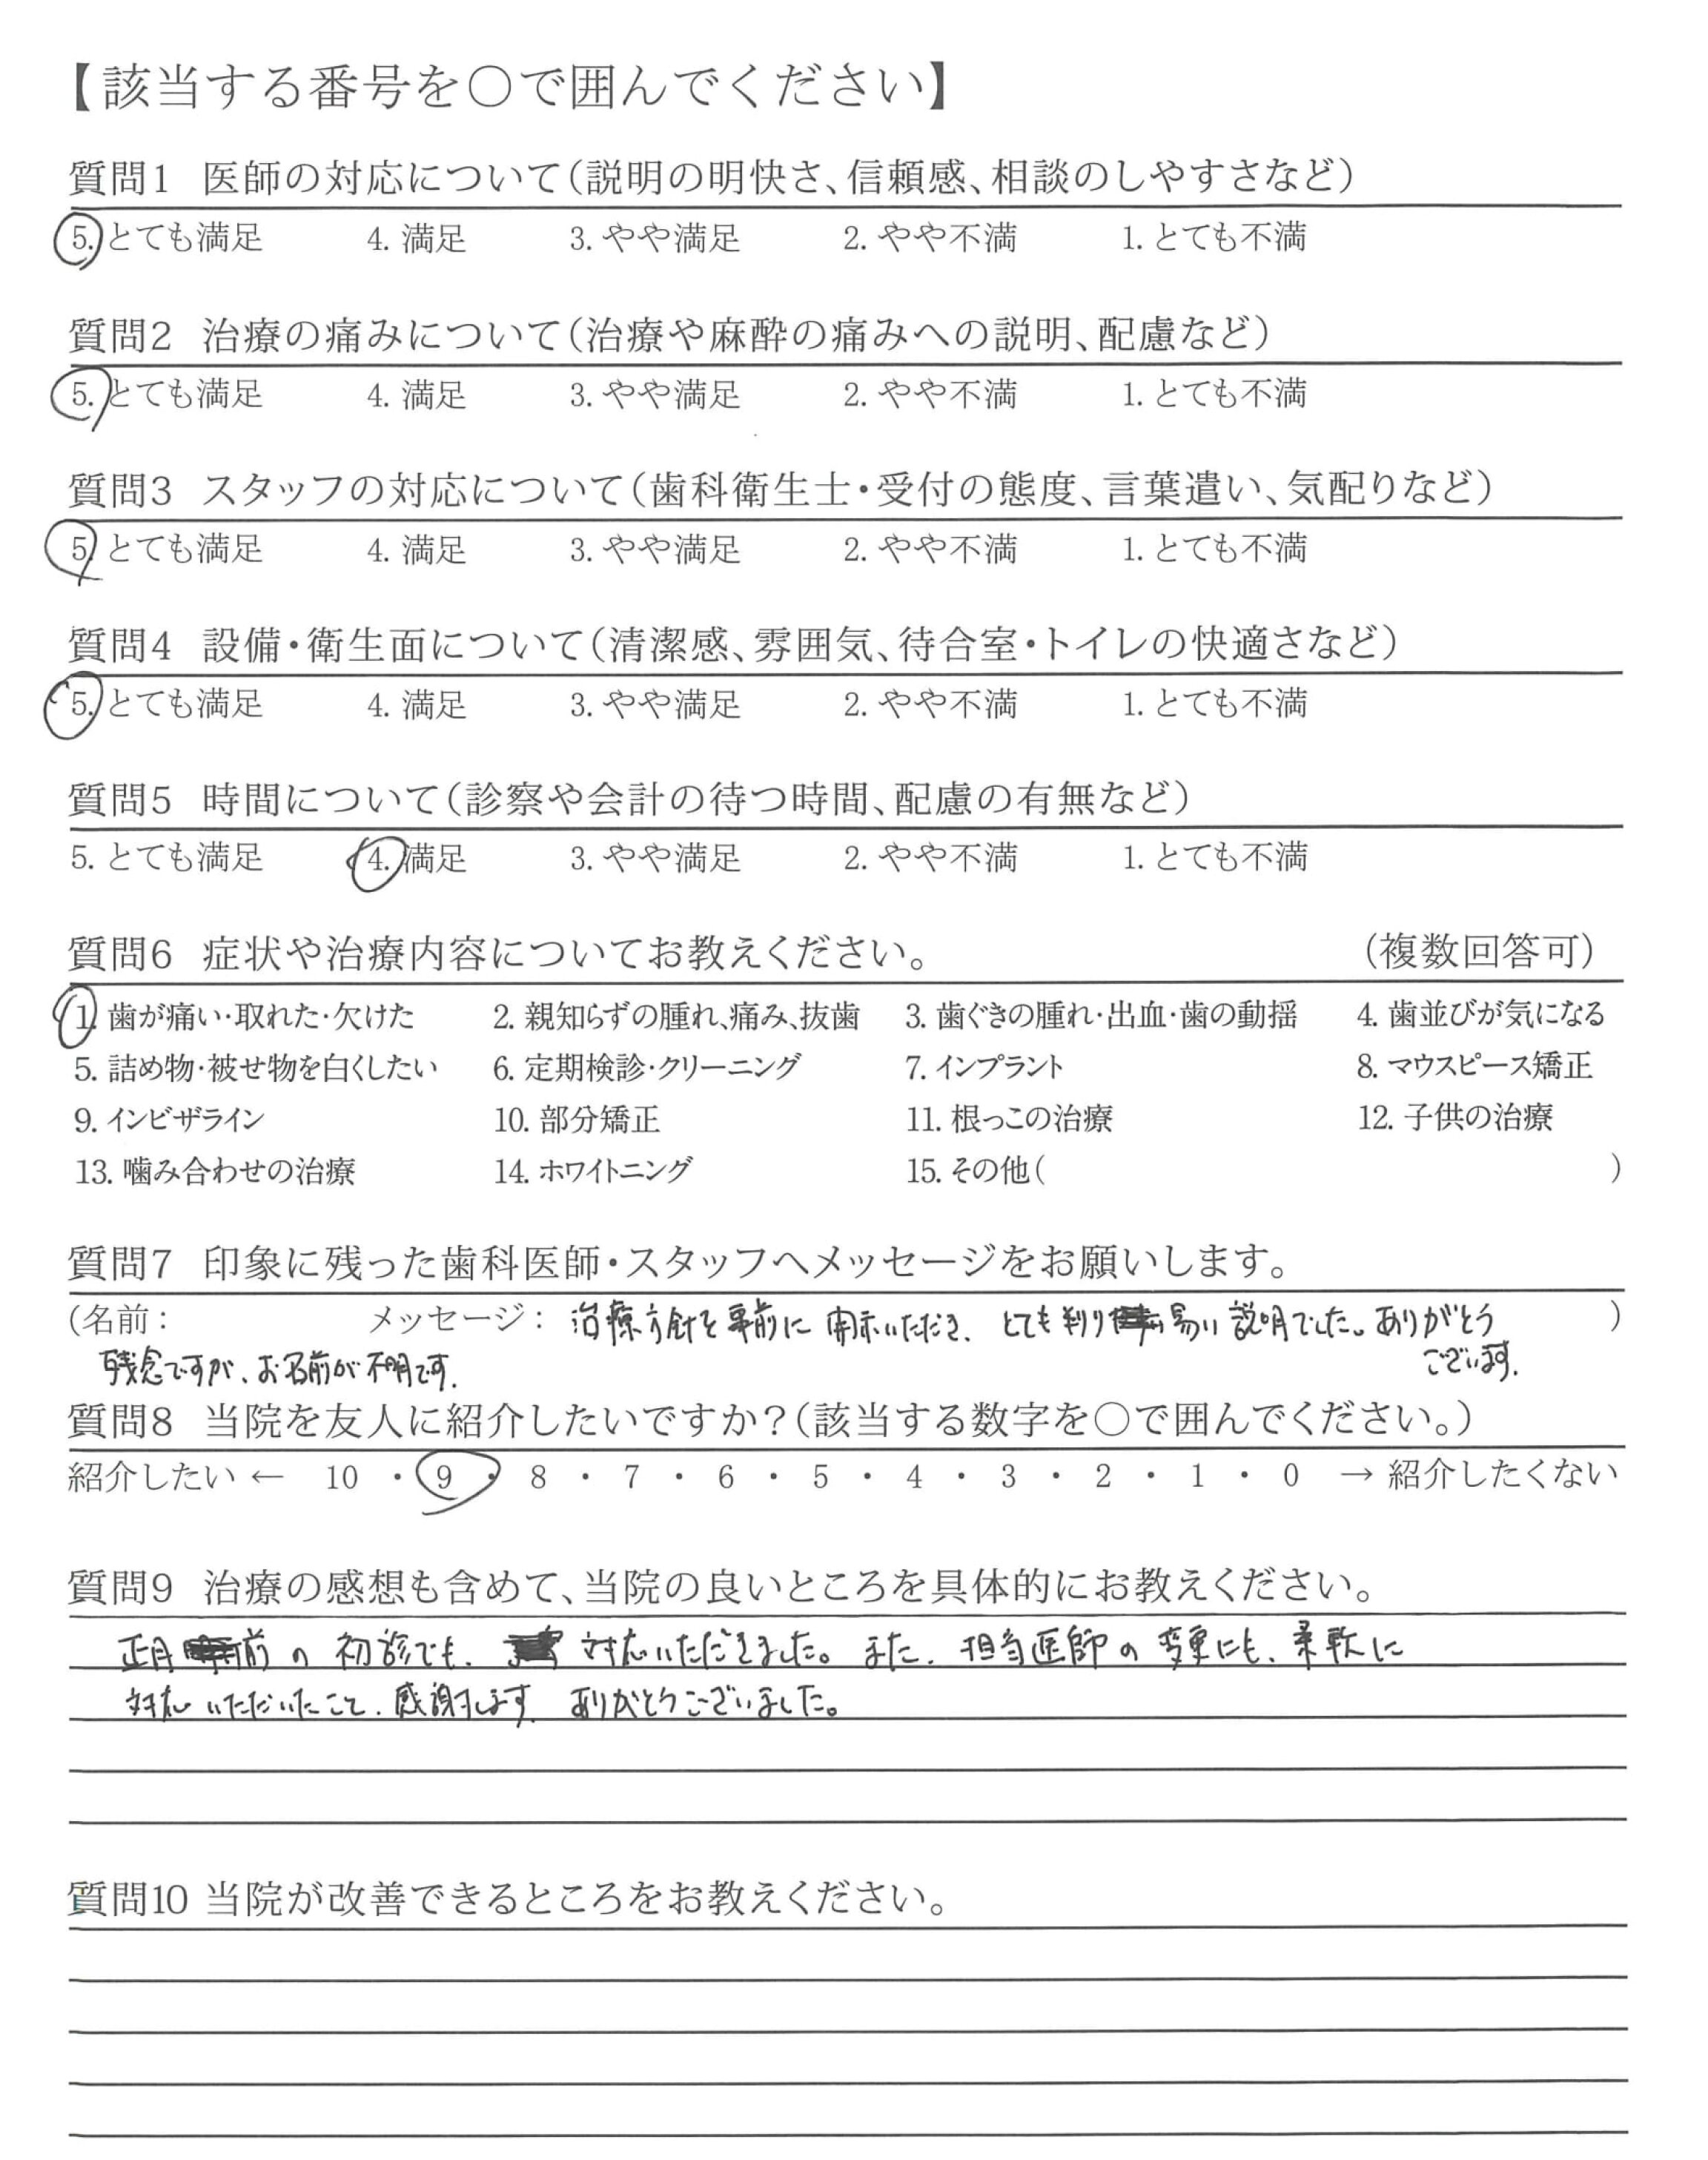 【該当する番号を〇で囲んでください】
質問1 医師の対応について(説明の明快さ、信頼感、相談のしやすさなど)
5. とても満足 4. 満足 3. やや満足 2. やや不満 1. とても不満
質問2 治療の痛みについて(治療や麻酔の痛みへの説明、配慮など)
5. とても満足 4. 満足 3. やや満足 2. やや不満 1. とても不満
質問3 スタッフの対応について(歯科衛生士・受付の態度、言葉遣い、気配りなど)
5. とても満足 4. 満足 3. やや満足 2. やや不満 1. とても不満
質問4 設備・衛生面について(清潔感、雰囲気、待合室・トイレの快適さなど)
5. とても満足 4. 満足 3. やや満足 2. やや不満 1. とても不満
質問5 時間について(診察や会計の待つ時間、配慮の有無など)
5. とても満足 4. 満足 3. やや満足 2. やや不満 1. とても不満
質問6 症状や治療内容についてお教えください。 (複数回答可)
1. 歯が痛い・取れた・欠けた 2. 親知らずの腫れ、痛み、抜歯 3. 歯ぐきの腫れ・出血・歯の動揺 4. 歯並びが気になる
5. 詰め物・被せ物を白くしたい 6. 定期検診・クリーニング 7. インプラント 8. マウスピース矯正
9. インビザライン 10. 部分矯正 11. 根っこの治療 12. 子供の治療
13. 噛み合わせの治療 14. ホワイトニング 15. その他( )
質問7 印象に残った歯科医師・スタッフへメッセージをお願いします。
(名前: メッセージ: 治療方針を事前に開示いただき、とても判り易い説明でした。ありがとう )
残念ですが、お名前が不明です. ございます.
質問8 当院を友人に紹介したいですか?(該当する数字を〇で囲んでください。)
紹介したい ← 10 ・ 9 ・ 8 ・ 7 ・ 6 ・ 5 ・ 4 ・ 3 ・ 2 ・ 1 ・ 0 → 紹介したくない
質問9 治療の感想も含めて、当院の良いところを具体的にお教えください。
正月前の初診でも、対応いただきました。また、担当医師の変更にも、柔軟に
対応いただいたこと、感謝します. ありがとうございました。
質問10 当院が改善できるところをお教えください。